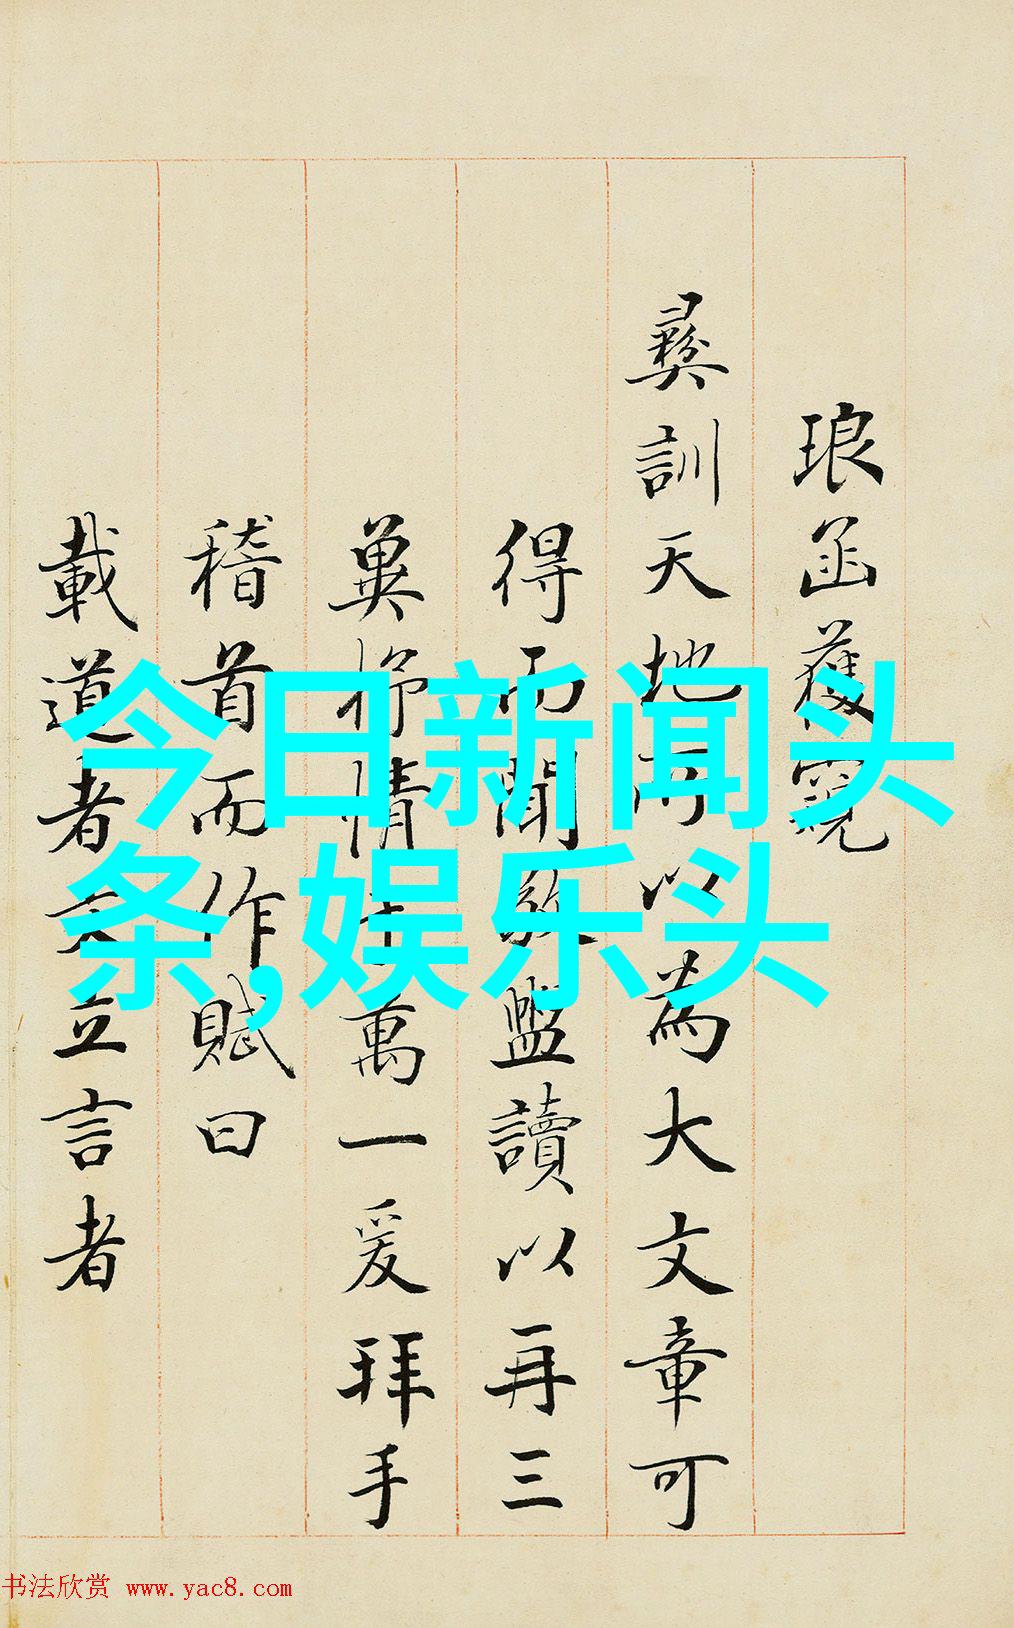 琅函獲窺
彝訓天地所以為大文章可
得而聞欽監讀以再三
冀抒情于萬一爰拜手
稽首而作賦曰
載道者文立言者
今日新闻头
条,娱乐头
书法欣赏 www.yac8.com